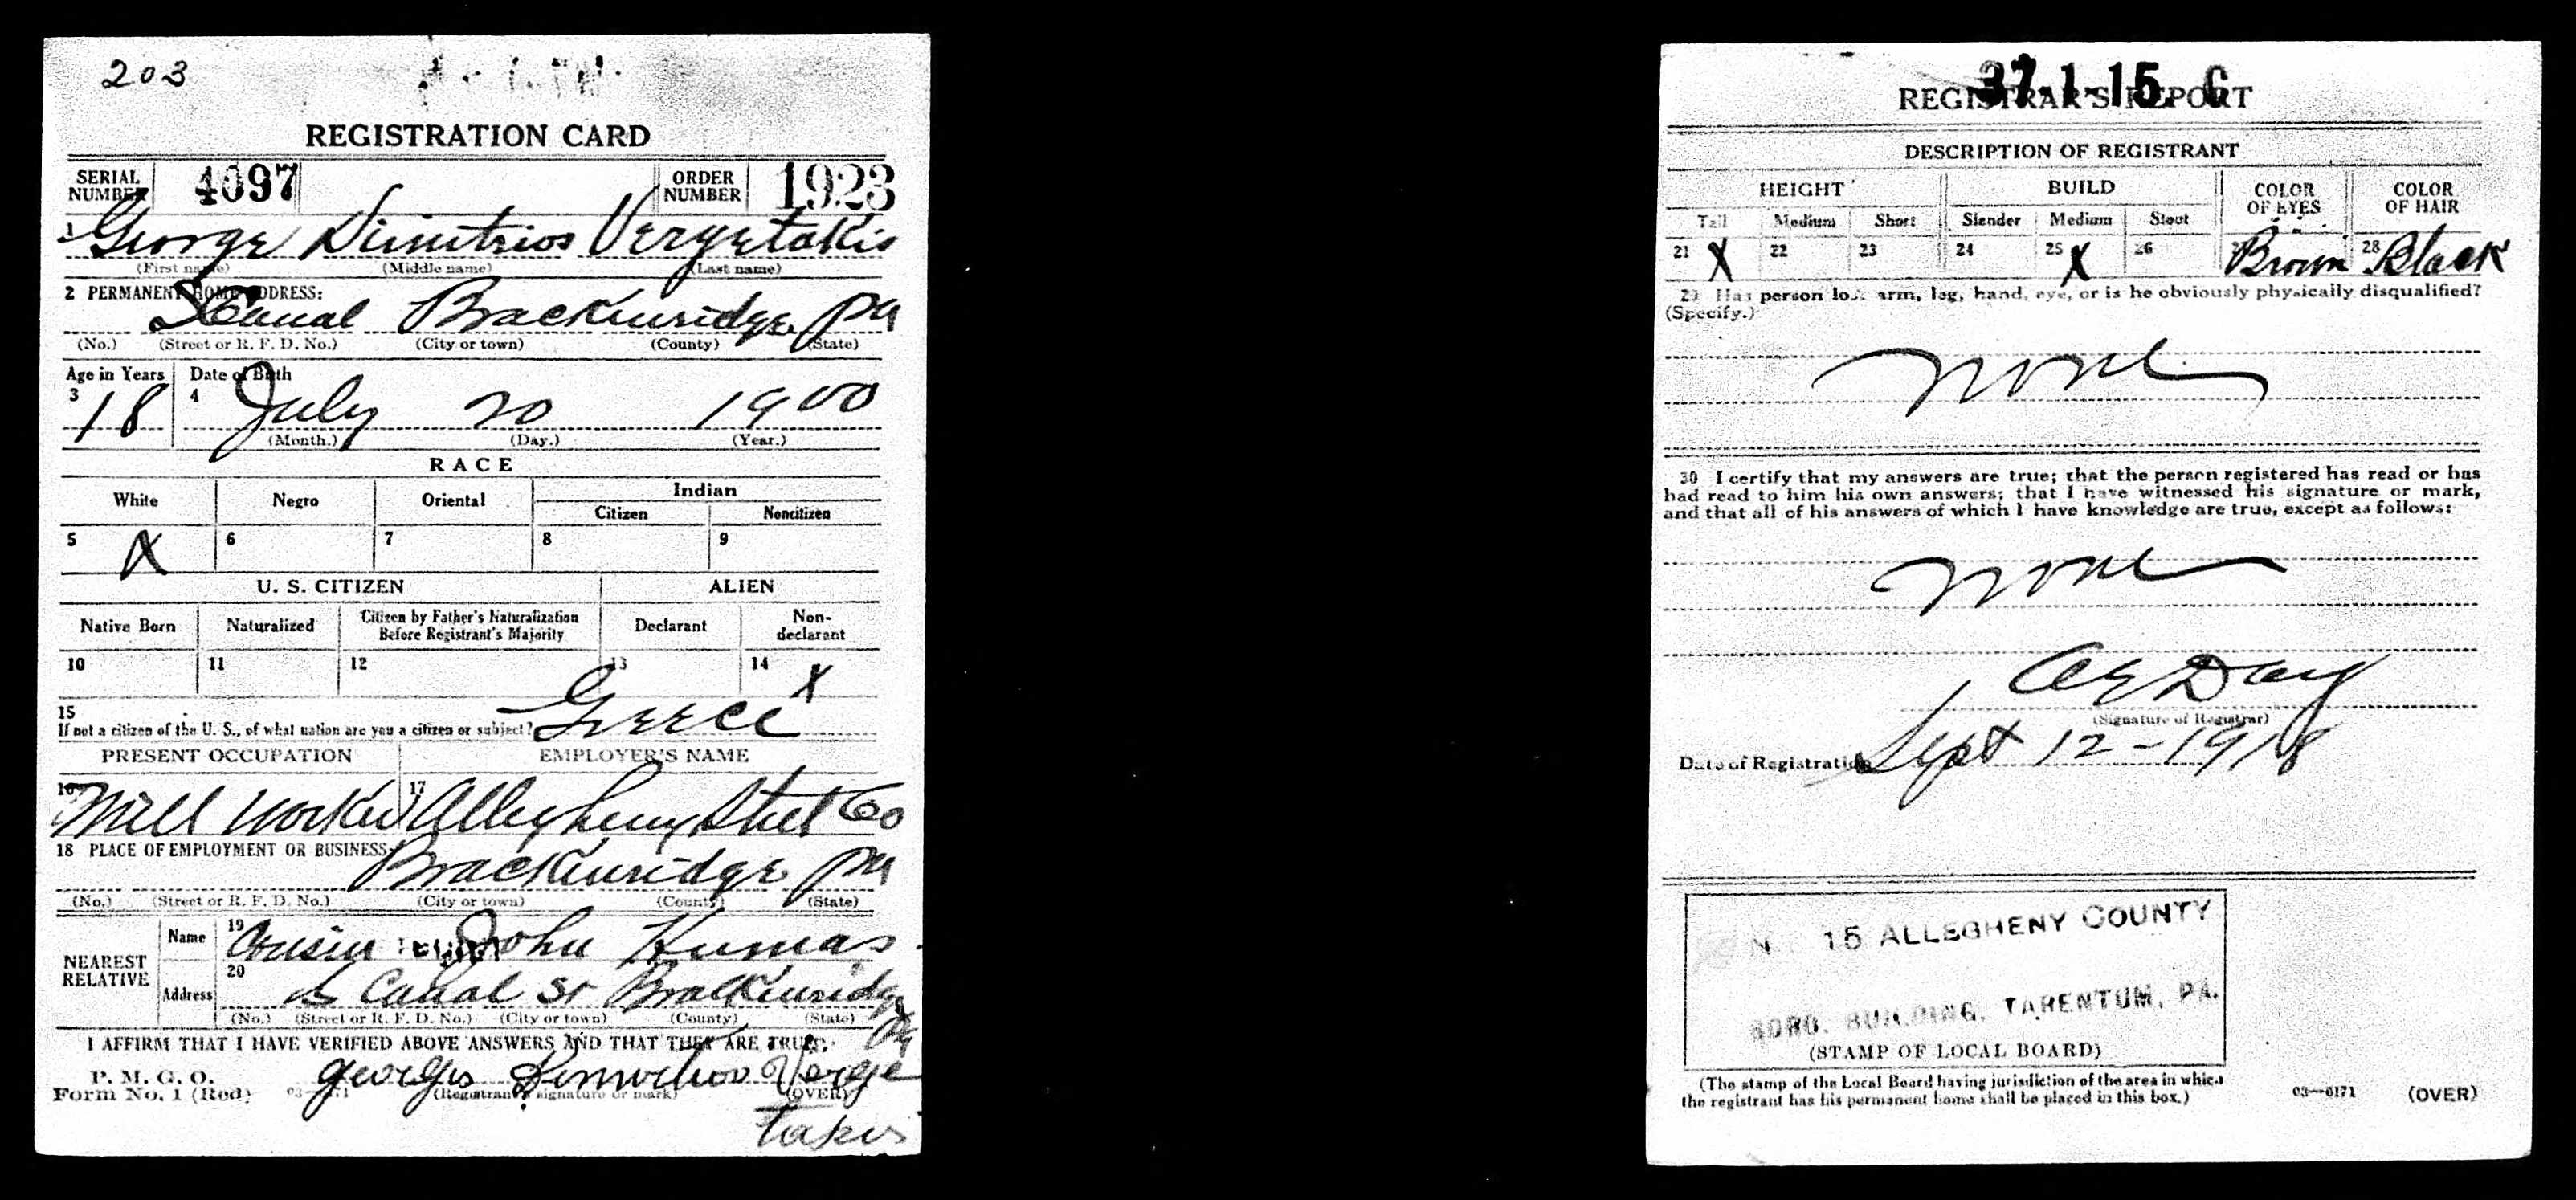 203
REGISTRATION CARD
SERIAL NUMBER 4097 ORDER NUMBER 1923
1 George Dimitrios Vergetakis
(First name) (Middle name) (Last name)
2 PERMANENT HOME ADDRESS:
Canal Brackenridge Pa
(No.) (Street or R. F. D. No.) (City or town) (County) (State)
Age in Years Date of Birth
3 18 4 July 20 1900
(Month.) (Day.) (Year.)
RACE
White Negro Oriental Indian
Citizen Noncitizen
5 X 6 7 8 9
U. S. CITIZEN ALIEN
Native Born Naturalized Citizen by Father's Naturalization Before Registrant's Majority Declarant Non-declarant
10 11 12 13 14 X
15
If not a citizen of the U. S., of what nation are you a citizen or subject? Greece
PRESENT OCCUPATION EMPLOYER'S NAME
16 Mill Worker 17 Allegheny Steel Co
18 PLACE OF EMPLOYMENT OR BUSINESS:
Brackenridge Pa
(No.) (Street or R. F. D. No.) (City or town) (County) (State)
NEAREST RELATIVE
Name 19 Cousin John Kumas
Address 20 Canal St Brackenridge Pa
(No.) (Street or R. F. D. No.) (City or town) (County) (State)
I AFFIRM THAT I HAVE VERIFIED ABOVE ANSWERS AND THAT THEY ARE TRUE.
P. M. G. O.
Form No. 1 (Red) Verge
(Registrant's signature or mark) (OVER)
takis
37-1-15. C
REGISTRAR'S REPORT
DESCRIPTION OF REGISTRANT
HEIGHT BUILD COLOR OF EYES COLOR OF HAIR
Tall Medium Short Slender Medium Stout
21 X 22 23 24 25 X 26 Brown 28 Black
29 Has person lost arm, leg, hand, eye, or is he obviously physically disqualified?
(Specify.)
None
30 I certify that my answers are true; that the person registered has read or has
had read to him his own answers; that I have witnessed his signature or mark,
and that all of his answers of which I have knowledge are true, except as follows:
None
Day
(Signature of Registrar)
Date of Registration Sept 12-1918
15 ALLEGHENY COUNTY
BORO. BUILDING, TARENTUM, PA.
(STAMP OF LOCAL BOARD)
(The stamp of the Local Board having jurisdiction of the area in which
the registrant has his permanent home shall be placed in this box.)
03—6171 (OVER)